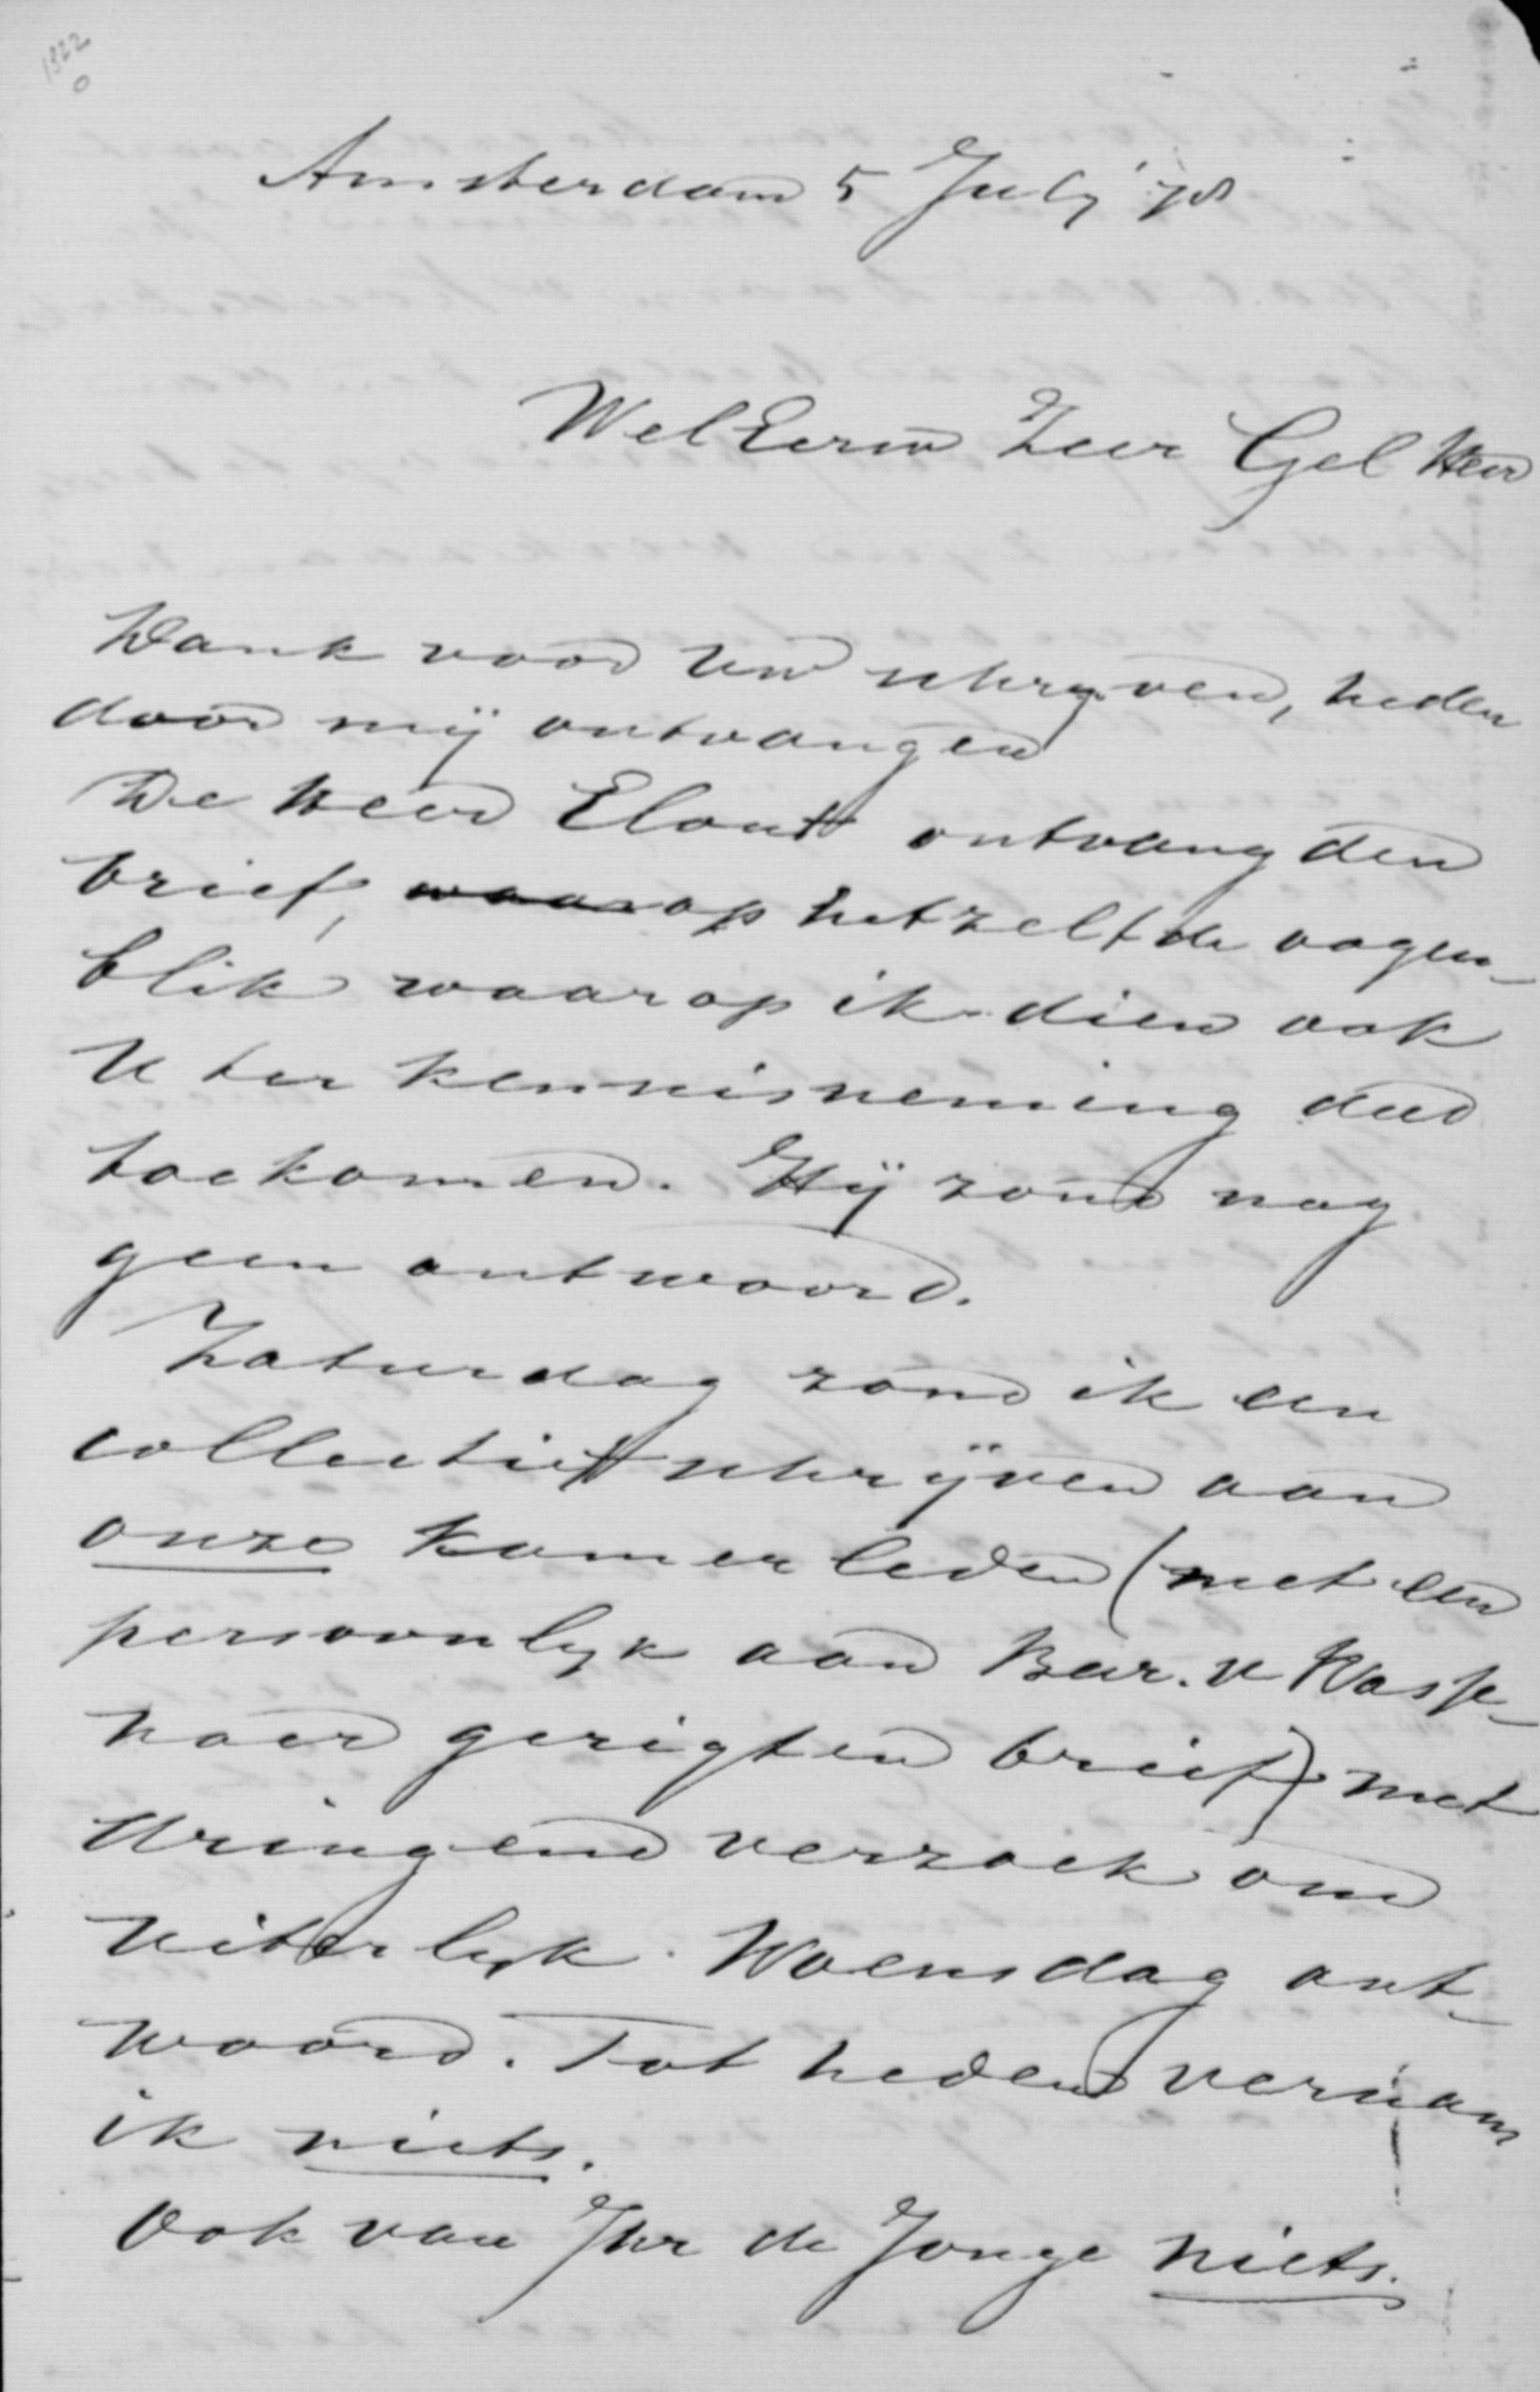 1922
0
Amsterdam 5 July '78
WelEerw Zeer Gel Heer
Dank voor Uw schryven, heden
door mij ontvangen
De Heer Elout ontvang den
brief, waarop hetzelfde oogen-
blik waarop ik dien ook
U ter kennisneming deed
toekomen. Hij zond nog
geen antwoord.
Zaturdag zond ik een
collectief schrijven aan
onze Kamerleden (met een
persoonlyk aan Bar. v Wasse-
naer gerigten brief) met
dringend verzoek om
uiterlyk Woensdag ant-
woord. Tot heden vernam
ik niets.
Ook van Jhr de Jonge niets.